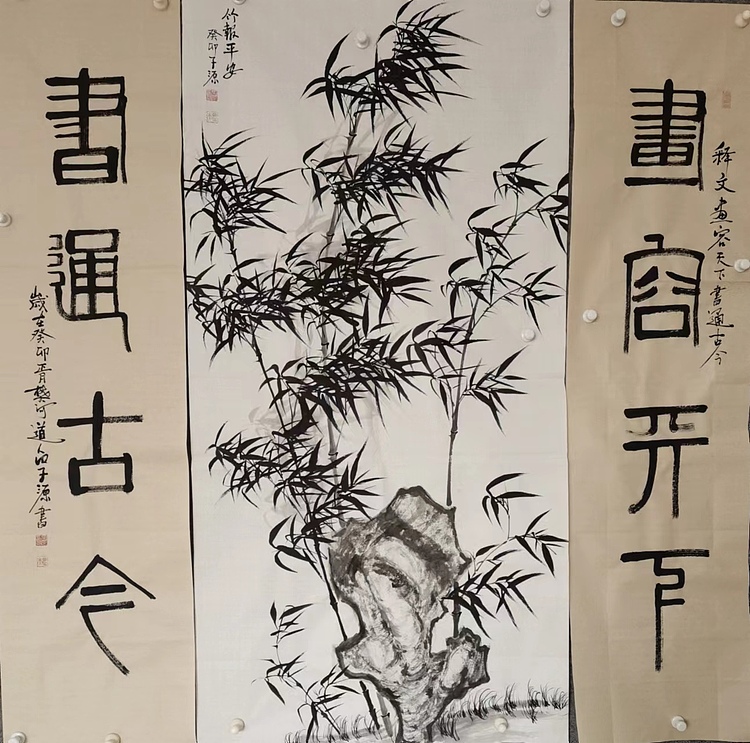 釋文畫容天下書通古今
畫容天下
竹報平安
癸卯子源
書通古今
歲在癸卯子源書